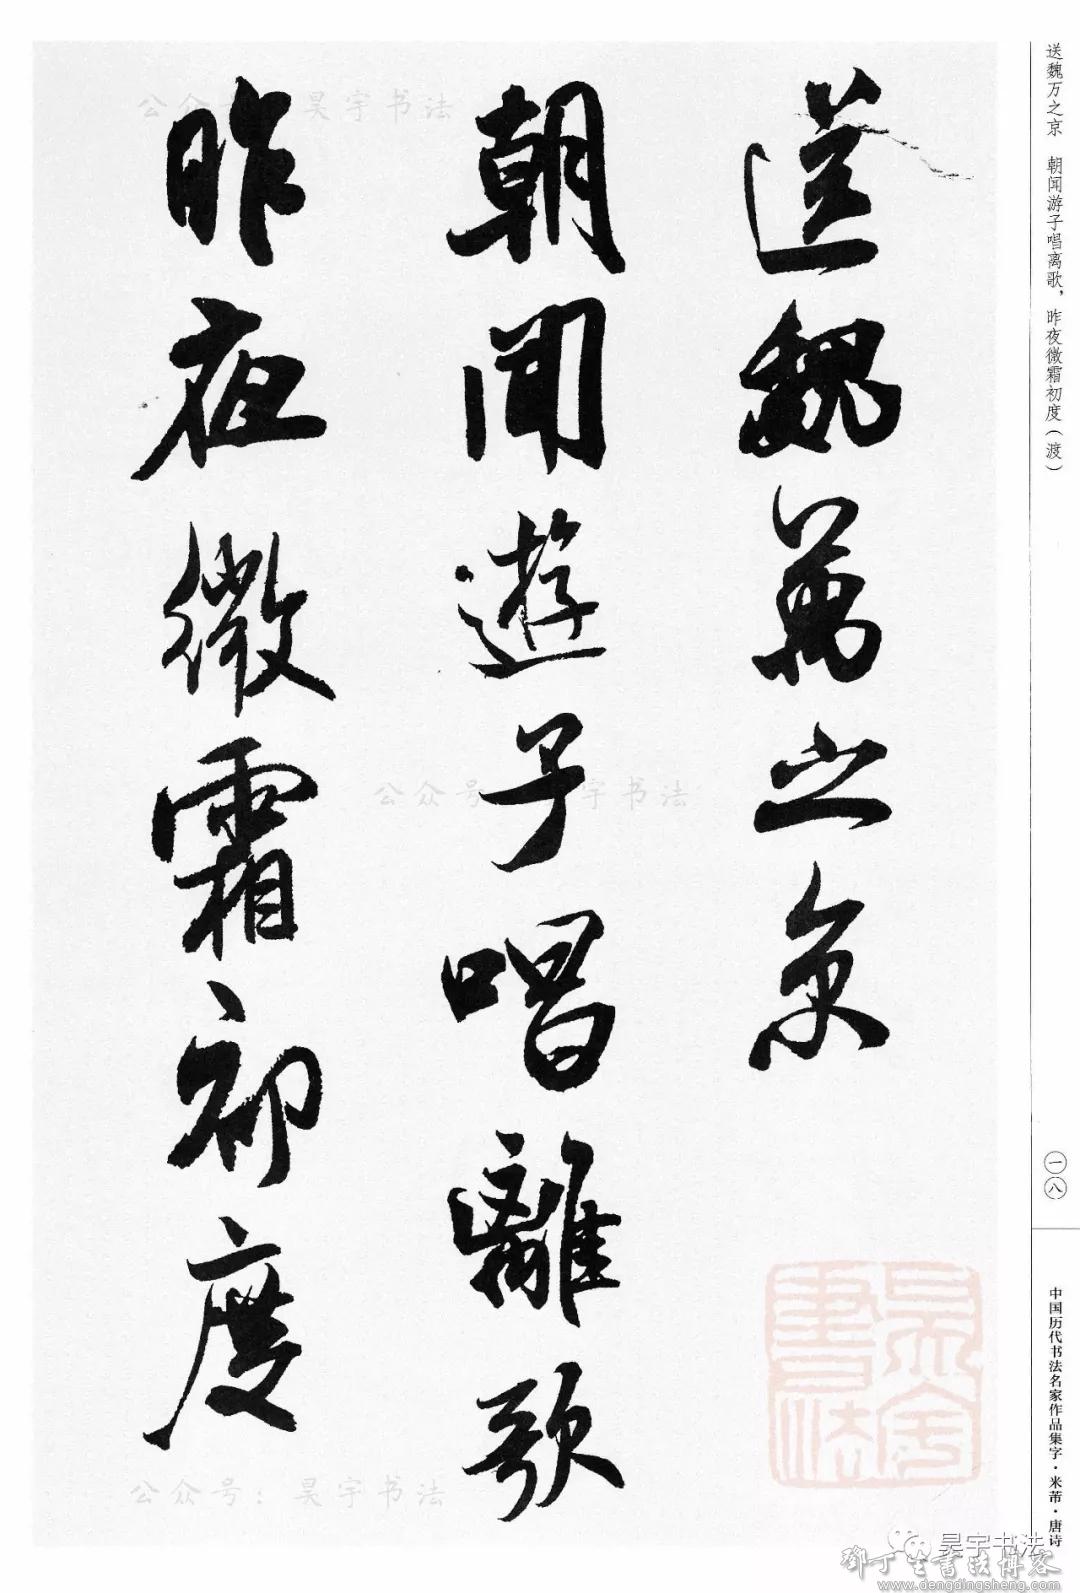 送魏万之京　朝闻游子唱离歌，昨夜微霜初度（渡）
送魏萬之京
朝聞遊子唱離歌
昨夜微霜初度
一八
中国历代书法名家作品集字·米芾·唐诗
公众号：昊宇书法
公众号：昊宇书法
公众号：昊宇书法
昊宇書法
昊宇书法
鄧丁生書法博客
www.dengdingsheng.com